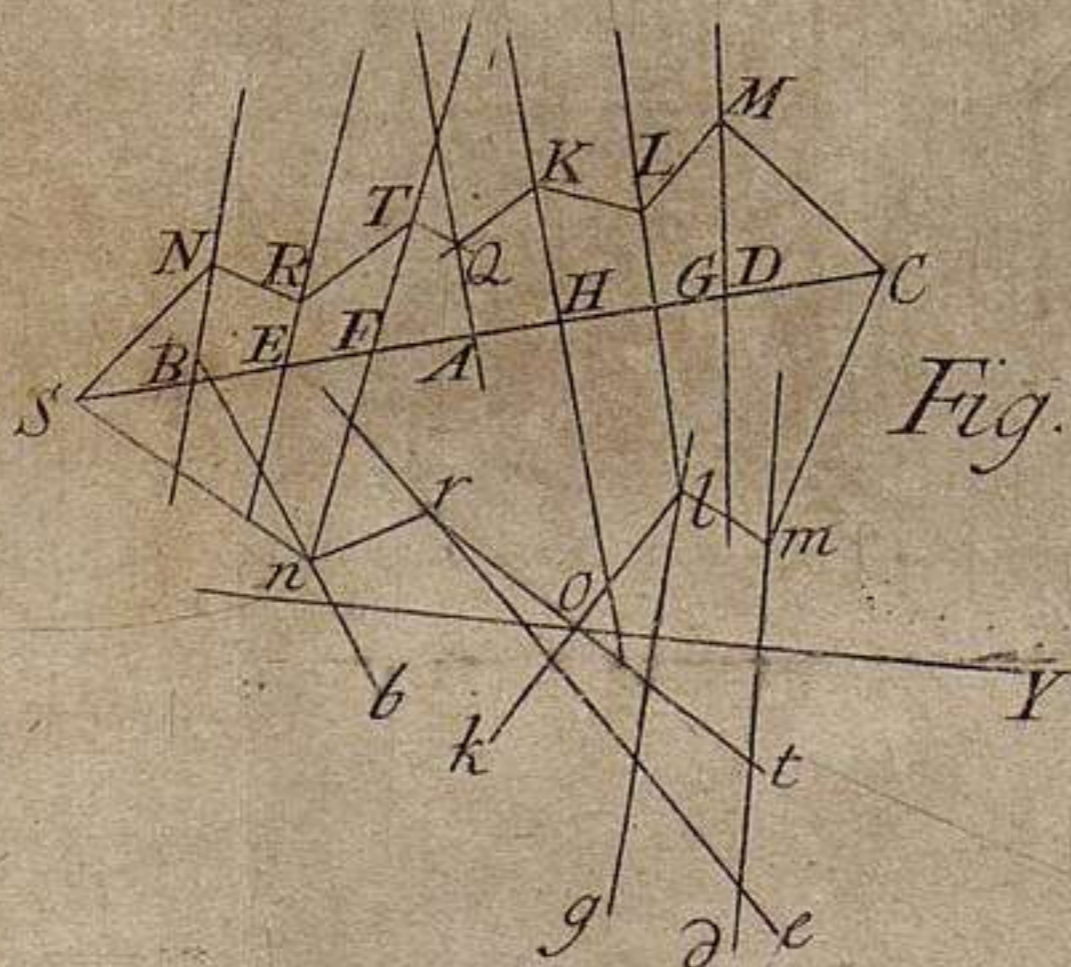 M
K
L
T
N
R
Q
H
G
D
C
E
F
B
A
S
Fig.
r
l
m
n
o
b
k
Y
t
g
d
e